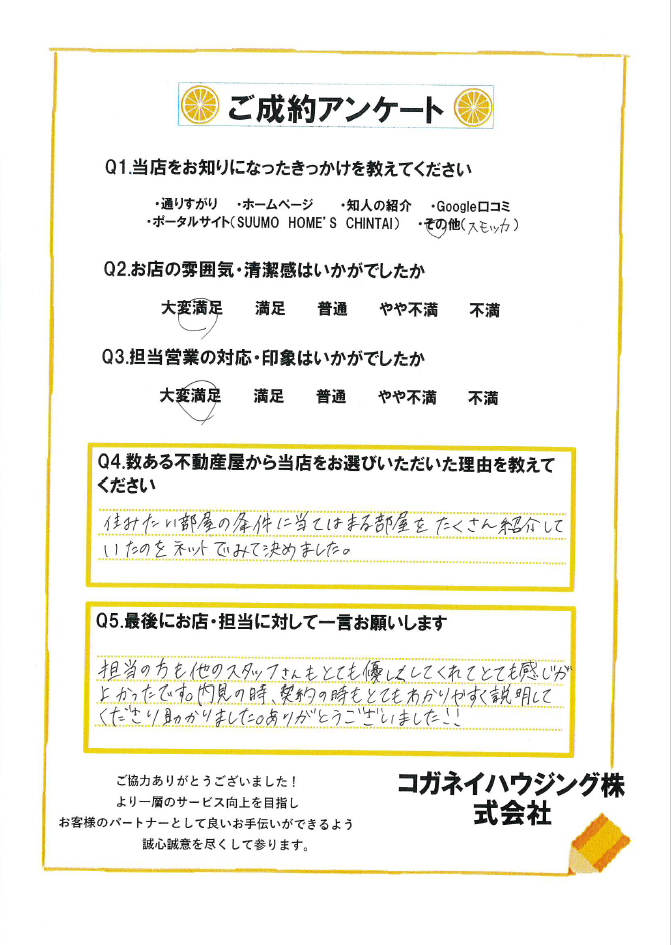 ご成約アンケート
Q1.当店をお知りになったきっかけを教えてください
・通りすがり ・ホームページ ・知人の紹介 ・Google口コミ
・ポータルサイト(SUUMO HOME'S CHINTAI) ・その他(スモッカ)
Q2.お店の雰囲気・清潔感はいかがでしたか
大変満足 満足 普通 やや不満 不満
Q3.担当営業の対応・印象はいかがでしたか
大変満足 満足 普通 やや不満 不満
Q4.数ある不動産屋から当店をお選びいただいた理由を教えて
ください
住みたい部屋の条件に当てはまる部屋をたくさん紹介して
いたのをネットでみて決めました。
Q5.最後にお店・担当に対して一言お願いします
担当の方も他のスタッフさんもとても優しくしてくれてとても感じが
よかったです。内見の時、契約の時もとてもわかりやすく説明して
くださり助かりました。ありがとうございました!!
ご協力ありがとうございました!
より一層のサービス向上を目指し
お客様のパートナーとして良いお手伝いができるよう
誠心誠意を尽くして参ります。
コガネイハウジング株
式会社